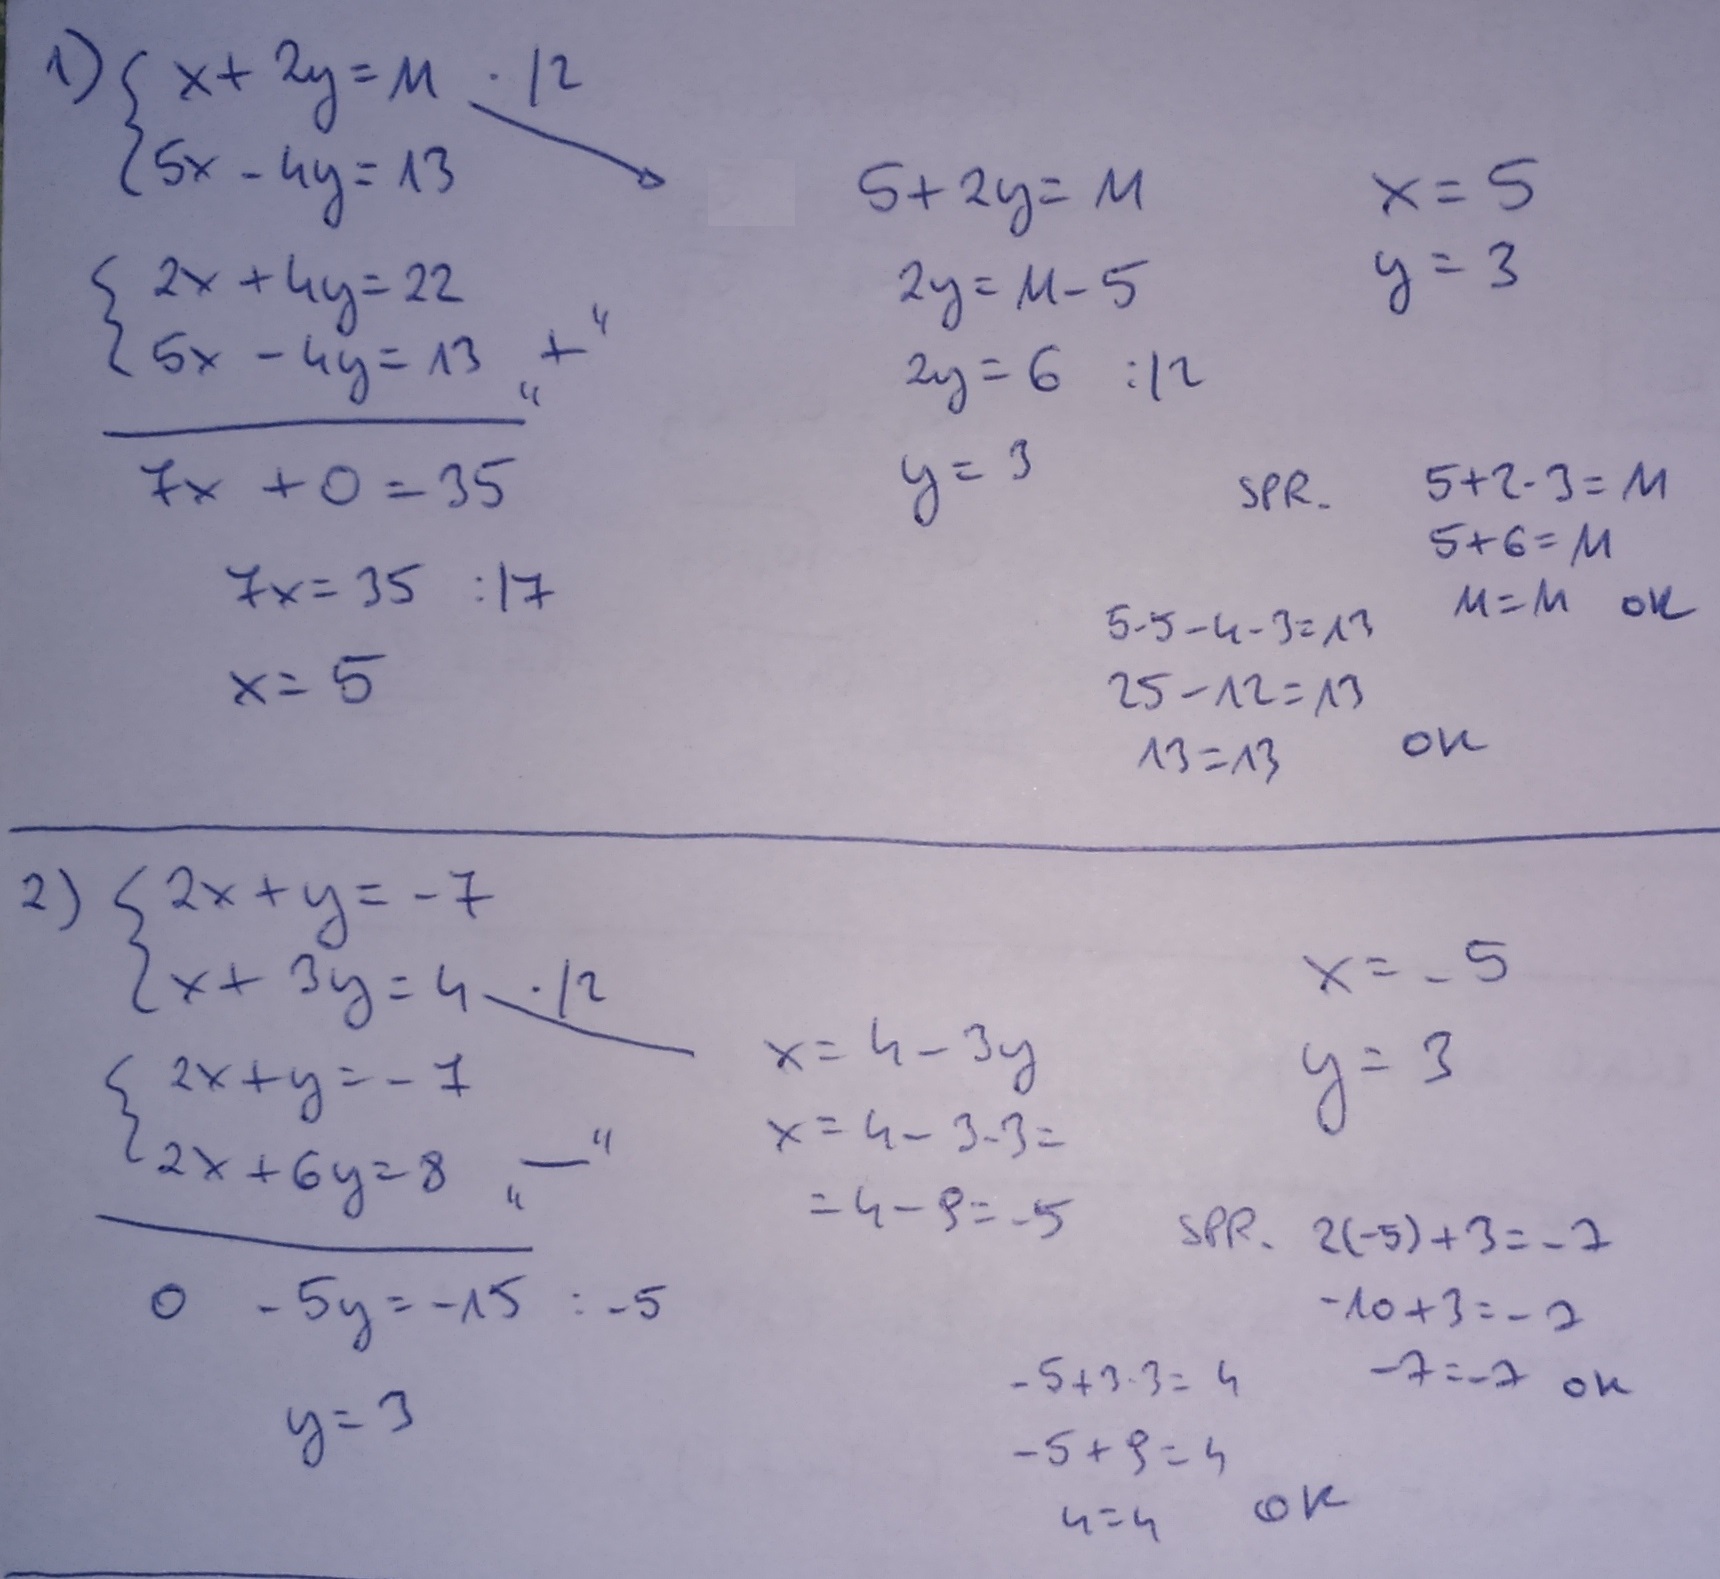 1) { x + 2y = 11 · |2
{ 5x - 4y = 13
{ 2x + 4y = 22
{ 5x - 4y = 13 „+“
7x + 0 = 35
7x = 35 :|7
x = 5
5 + 2y = 11
2y = 11 - 5
2y = 6 :|2
y = 3
x = 5
y = 3
SPR. 5 + 2 · 3 = 11
5 + 6 = 11
11 = 11 OK
5 · 5 - 4 · 3 = 13
25 - 12 = 13
13 = 13 OK
2) { 2x + y = -7
{ x + 3y = 4 · |2
{ 2x + y = -7
{ 2x + 6y = 8 „—“
0 - 5y = -15 : -5
y = 3
x = 4 - 3y
x = 4 - 3 · 3 =
= 4 - 9 = -5
x = -5
y = 3
SPR. 2(-5) + 3 = -7
-10 + 3 = -7
-7 = -7 OK
-5 + 3 · 3 = 4
-5 + 9 = 4
4 = 4 OK